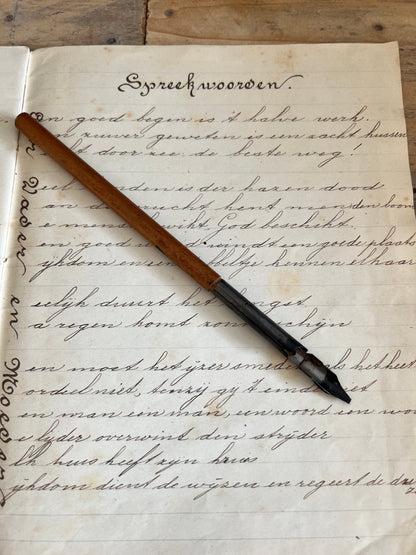 Spreekwoorden.
en goed begin is 't halve werk.
n zuiver geweten is een zacht kussen
cht door zee. de beste weg!
eel onden is der hazen dood
an de ucht kent men den boom
e mens wikt, God beschikt.
en goed w d vindt een goede plaats
ijkdom en een kennen elkaar
eelijk duurt het ngst
a regen komt zon schijn
en moet het ijzer smede als het heet
ordeel niet, tenzij gy 't eind iet
en man een man, een woord een wo
e lyder overwint den stryder
lk huis heeft zyn kruis
ijkdom dient de wyzen en regeert de dw
Vader en Moeder